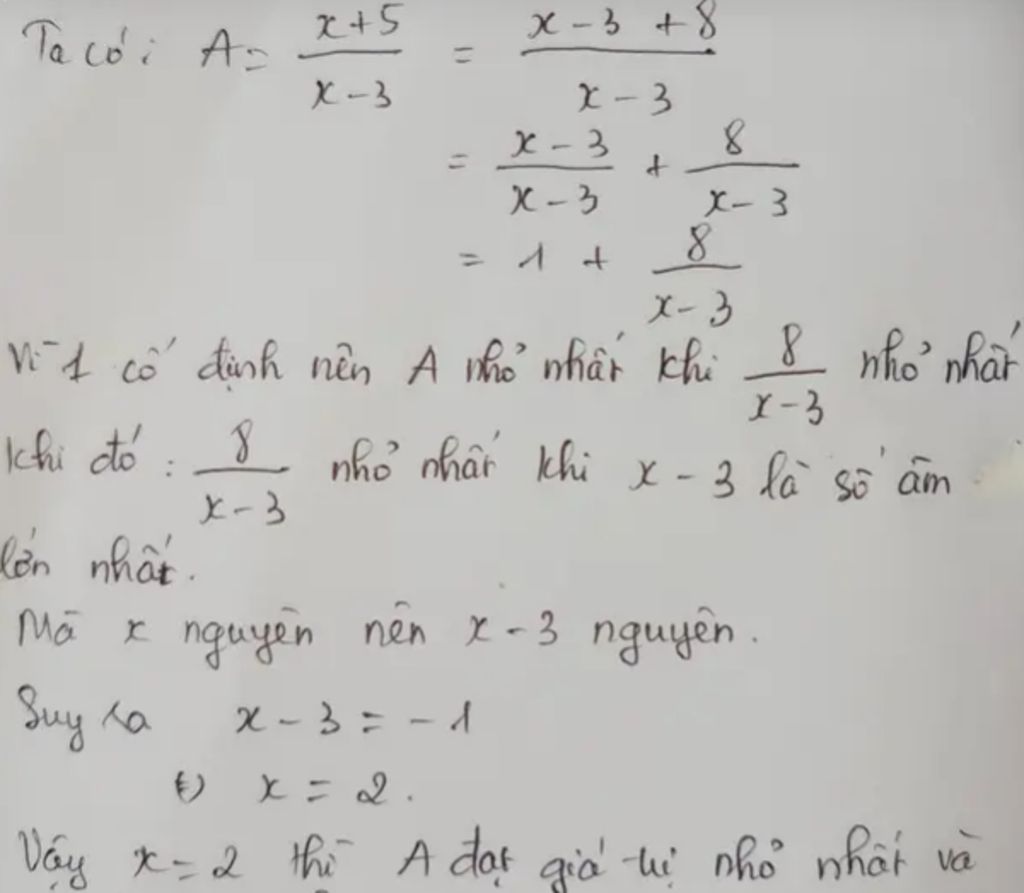 Ta có: A = \frac{x+5}{x-3} = \frac{x-3+8}{x-3}
= \frac{x-3}{x-3} + \frac{8}{x-3}
= 1 + \frac{8}{x-3}
Vì 1 cố định nên A nhỏ nhất khi \frac{8}{x-3} nhỏ nhất
khi đó: \frac{8}{x-3} nhỏ nhất khi x - 3 là số âm
lớn nhất.
Mà x nguyên nên x - 3 nguyên.
Suy ra x - 3 = - 1
(=) x = 2.
Vậy x = 2 thì A đạt giá trị nhỏ nhất và